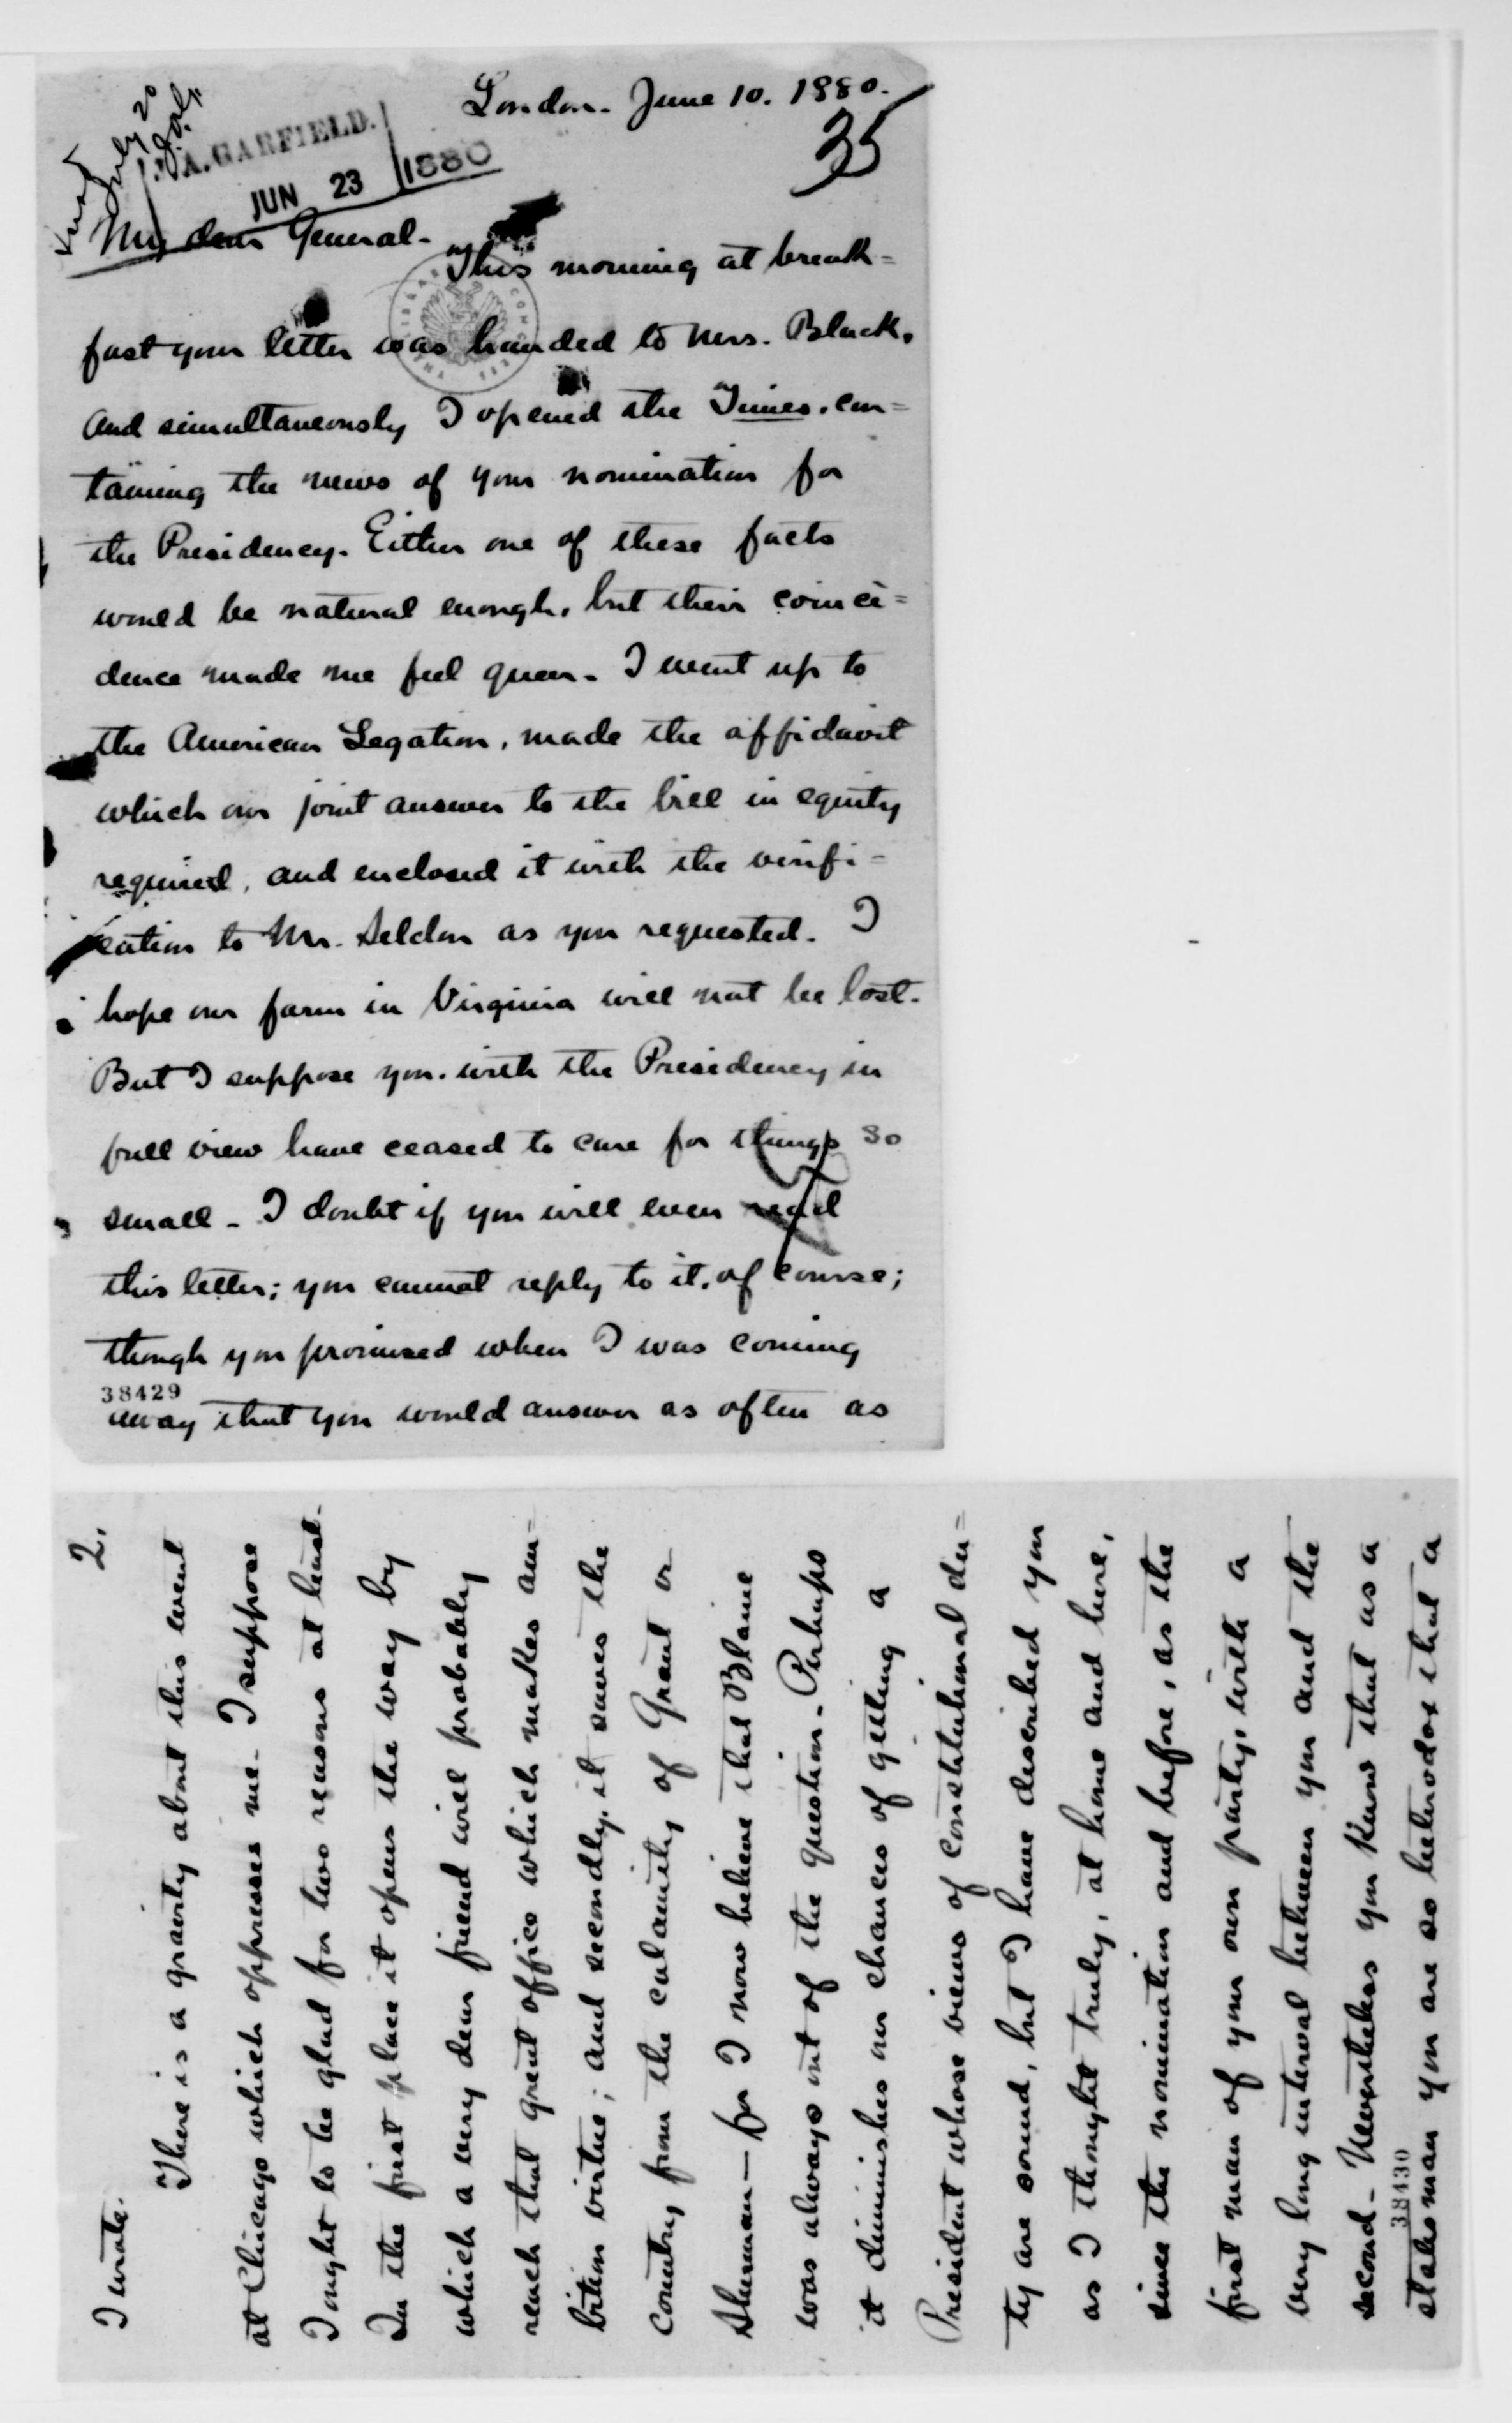 London. June 10. 1880.
35
July 20
J. A. GARFIELD.
JUN 23 1880
My dear General.
This morning at break=
fast your letter was handed to Mrs. Black,
and simultaneously I opened the Times, con=
taining the news of your nomination for
the Presidency. Either one of these facts
would be natural enough, but their coinci=
dence made me feel queer. I went up to
the American Legation, made the affidavit
which our joint answer to the bill in equity
required, and enclosed it with the verifi-
cation to Mr. Selden as you requested. I
hope our farm in Virginia will not be lost.
But I suppose you, with the Presidency in
full view have ceased to care for things so
small - I doubt if you will even read
this letter; you cannot reply to it, of course;
though you promised when I was coming
38429
away that you would answer as often as
2.
I wrote.
There is a gravity about this event
at Chicago which oppresses me. I suppose
I ought to be glad for two reasons at least.
In the first place it opens the way by
which a very dear friend will probably
reach that great office which makes am=
bition virtue; and secondly, it saves the
country from the calamity of Grant or
Sherman — for I now believe that Blaine
was always out of the question. Perhaps
it diminishes our chances of getting a
President whose views of constitutional du=
ty are sound, but I have described you
as I thought truly, at home and here,
since the nomination and before, as the
first man of your own party, with a
very long interval between you and the
second - Nevertheless you know that as a
38430
statesman you are so heterodox that a